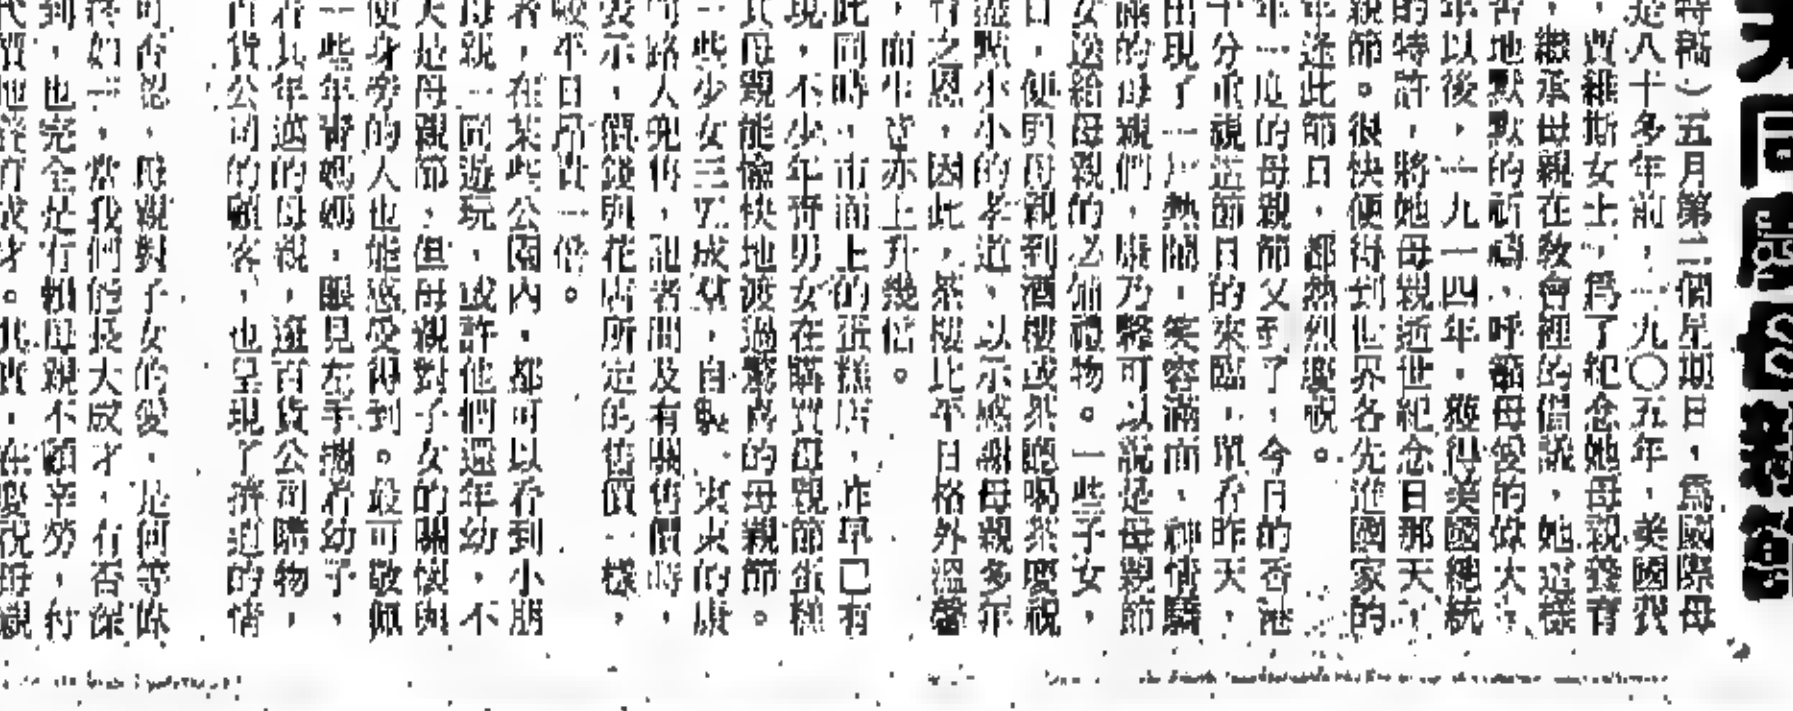 特稿）五月第二個星期日，爲國際母
是八十多年前，一九〇五年，美國費
，賈維斯女士，爲了紀念她母親養育
，繼承母親在敎會裡的倡議，她這樣
苦地默默的祈禱，呼籲母愛的偉大，
年以後，一九一四年，獲得美國總統
的特許，將她母親逝世紀念日那天，
親節。很快便得到世界各先進國家的
年逢此節日，都熱烈慶祝。
年一度的母親節又到了，今日的香港
十分重視這節日的來臨，單看昨天，
出現了一片熱鬧，笑容滿面，神情驕
的母親們，康乃馨可以說是母親節
女送給母親的必備禮物。一些子女，
日，便與母親到酒樓或茶廳喝茶慶祝
點小小的孝道，以示感謝母親多年
育之恩，因此，茶樓比平日格外溫馨
，而生意亦上升幾倍。
此同時，市面上的蛋糕店，昨早已有
現，不少年靑男女在購買母親節蛋糕
其母親能愉快地渡過驚喜的母親節。
一些少女三五成羣，自製一束束的康
向路人兜售，記者問及有關售價時，
表示，價錢與花店所定的售價一樣，
較平日昂貴一倍。
者，在某些公園內，都可以看到小朋
母親一同遊玩，或許他們還年幼，不
天是母親節，但母親對子女的關懷與
使身旁的人也能感受得到。最可敬佩
一些年靑媽媽，眼見左手攜着幼子，
着其年邁的母親，逛百貨公司購物，
百貨公司的顧客，也呈現了擠迫的情
可否認，母親對子女的愛，是何等偉
終如一，當我們能長大成才，有否深
到，也完全是有賴母親不顧辛勞，付